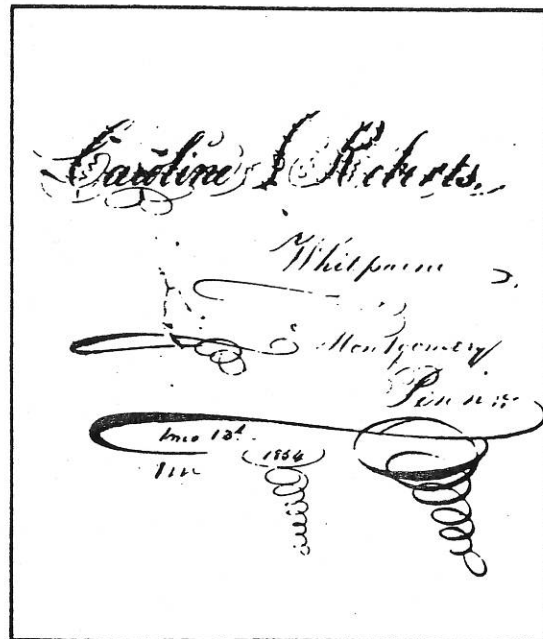 Caroline S Roberts.
Whitpaine
Montgomery
Penna
1854